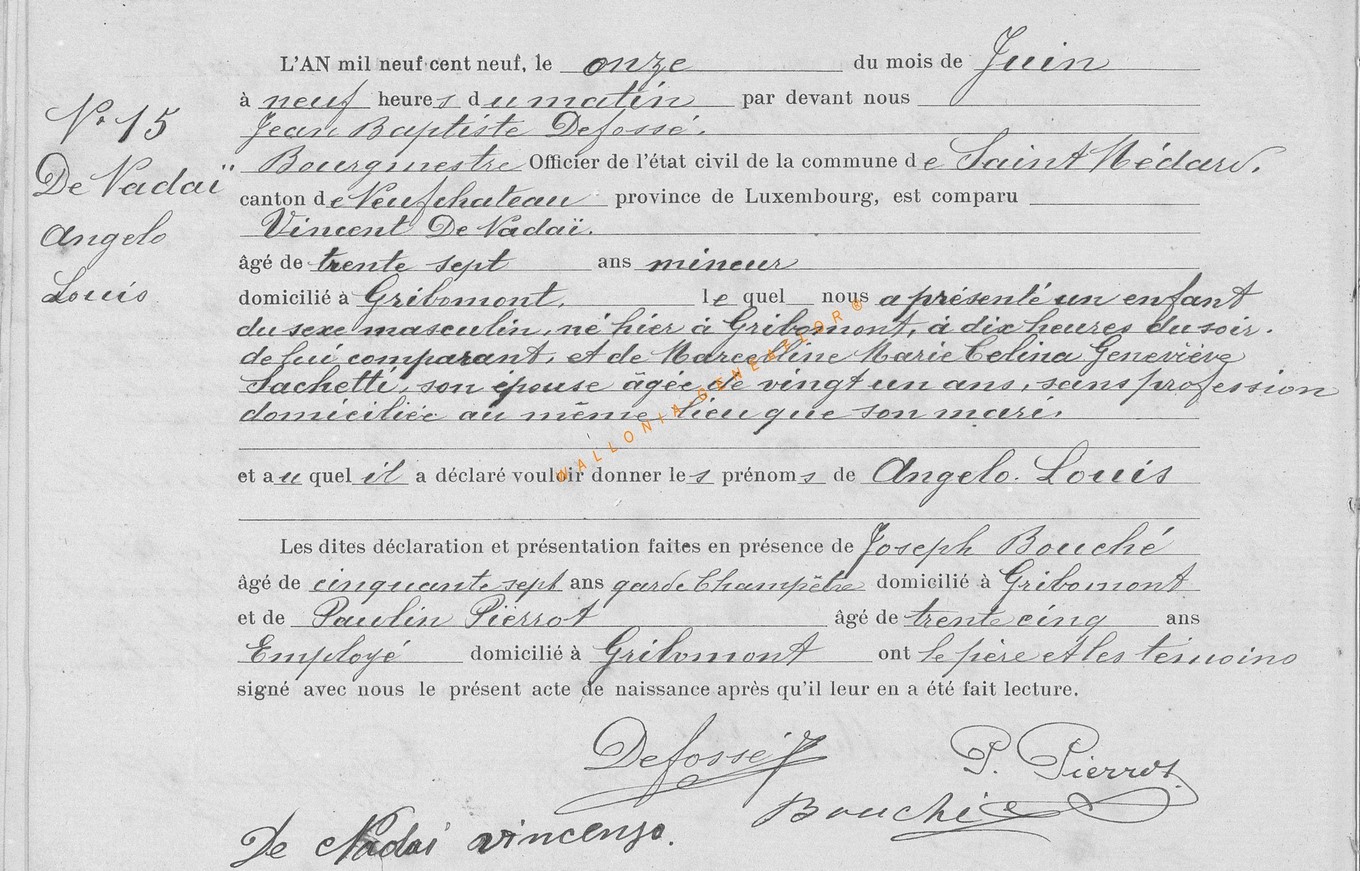 L'AN mil neuf cent neuf, le onze du mois de Juin
à neuf heures du matin par devant nous
Jean Baptiste Defossé.
Bourgmestre Officier de l'état civil de la commune de Saint Médard.
canton de Neufchateau province de Luxembourg, est comparu
Vincent De Nadaï.
âgé de trente sept ans mineur
domicilié à Gribomont. le quel nous a présenté un enfant
du sexe masculin, né hier à Gribomont, à dix heures du soir.
de lui comparant, et de Marceline Marie Celina Geneviève
Sachetti, son épouse âgée de vingt un ans, sans profession
domiciliée au même lieu que son mari.
et au quel il a déclaré vouloir donner les prénoms de Angelo. Louis
Les dites déclaration et présentation faites en présence de Joseph Bouché
âgé de cinquante sept ans garde Champêtre domicilié à Gribomont
et de Paulin Pierrot âgé de trente cinq ans
Employé domicilié à Gribomont ont le père et les témoins
signé avec nous le présent acte de naissance après qu'il leur en a été fait lecture.
N° 15
De Nadaï
Angelo
Louis
Defossé J
P. Pierrot
Bouché
De Nadai vincenzo.
WALLONIA-GENEATIOR ®